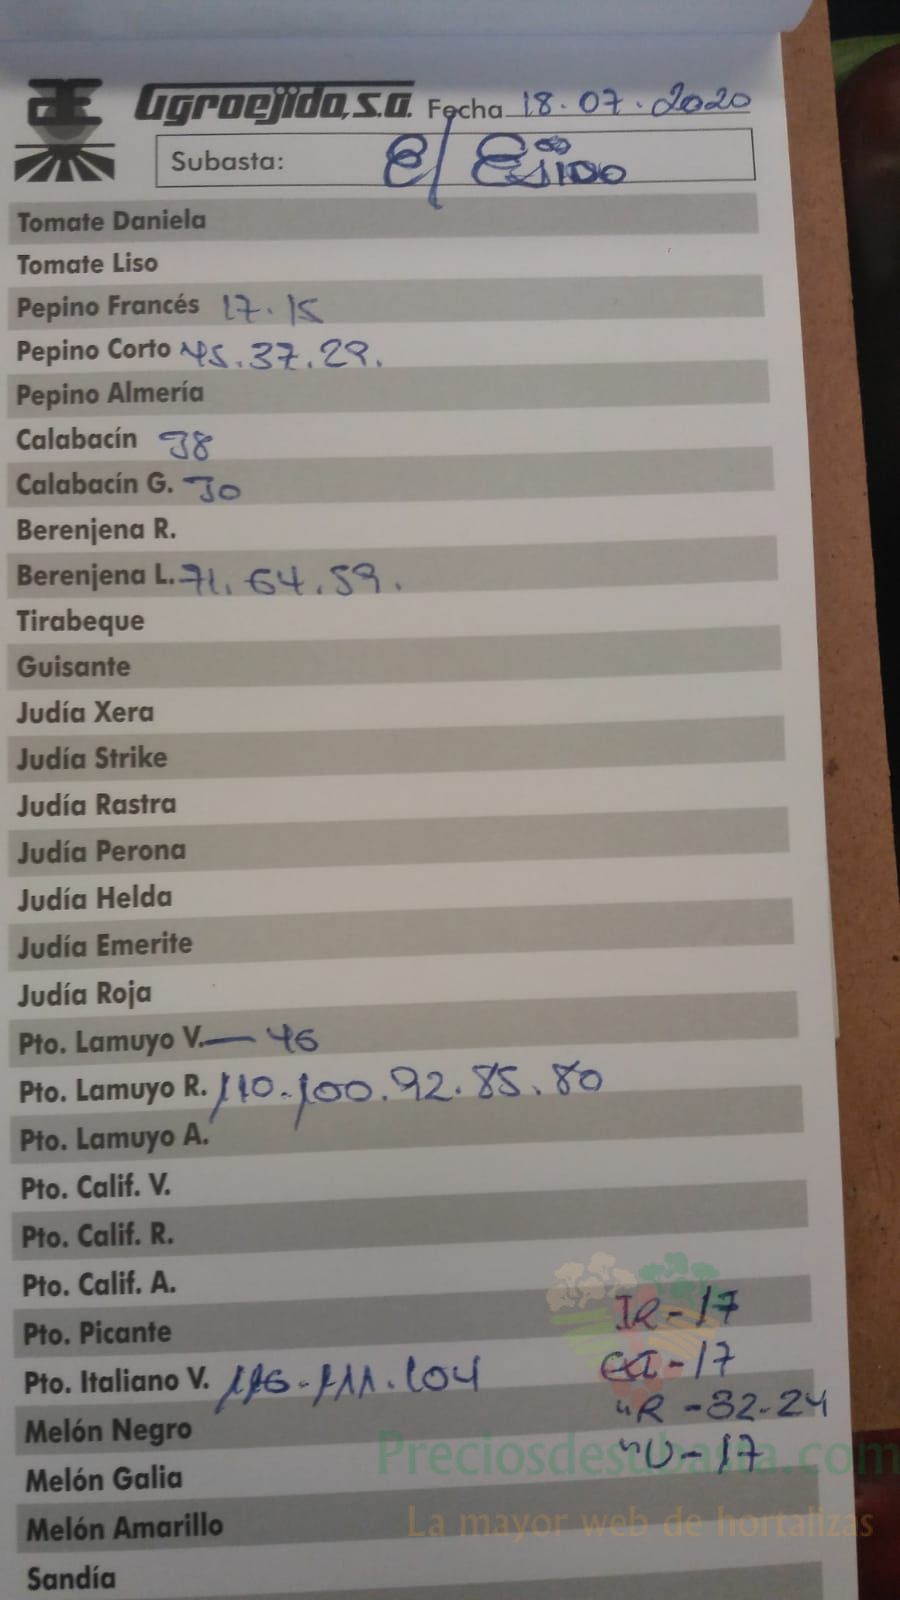 Agroejido, s.a. Fecha 18.07.2020
Subasta: El Ejido
Tomate Daniela
Tomate Liso
Pepino Francés 17.15
Pepino Corto 45.37.29.
Pepino Almería
Calabacín 38
Calabacín G. 30
Berenjena R.
Berenjena L. 71.64.59.
Tirabeque
Guisante
Judía Xera
Judía Strike
Judía Rastra
Judía Perona
Judía Helda
Judía Emerite
Judía Roja
Pto. Lamuyo V. — 46
Pto. Lamuyo R. 110.100.92.85.80
Pto. Lamuyo A.
Pto. Calif. V.
Pto. Calif. R.
Pto. Calif. A.
IR-17
Pto. Picante
-17
Pto. Italiano V. 111.104
"R -32-24
Melón Negro
"V-17
Preciosdesubasta.com
Melón Galia
Melón Amarillo
La mayor web de hortalizas
Sandía